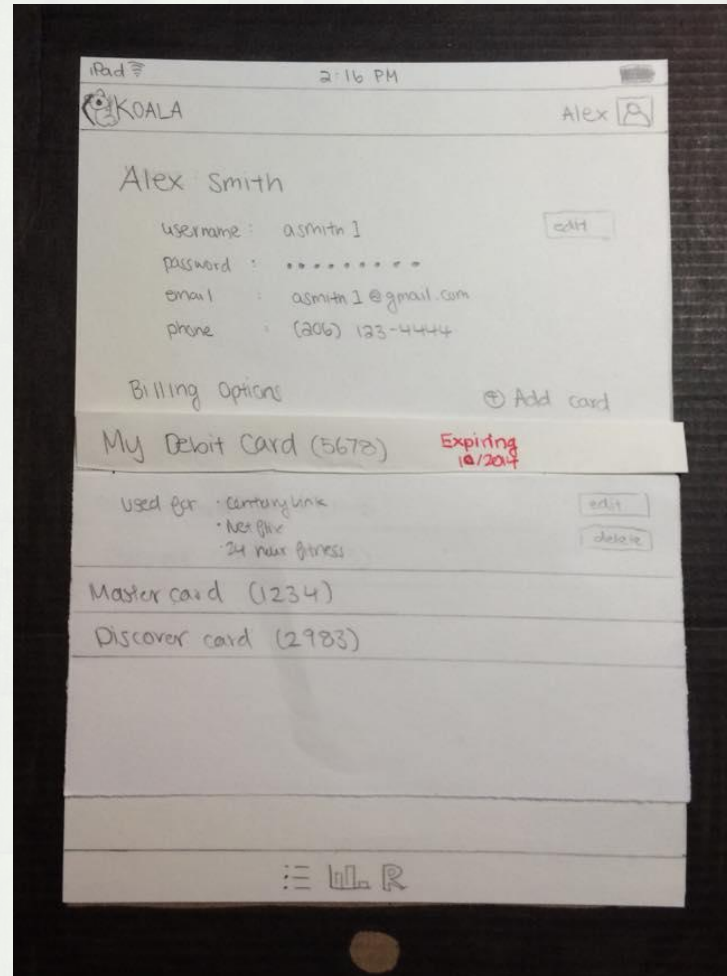 iPad
2:16 PM
KOALA
Alex
Alex Smith
username : asmith1
edit
password : •••••••••
email : asmith1@gmail.com
phone : (206) 123-4444
Billing Options
+ Add card
My Debit Card (5678)
Expiring
10/2014
used for • CenturyLink
• Netflix
• 24 hour fitness
edit
delete
Mastercard (1234)
Discover card (2983)
R